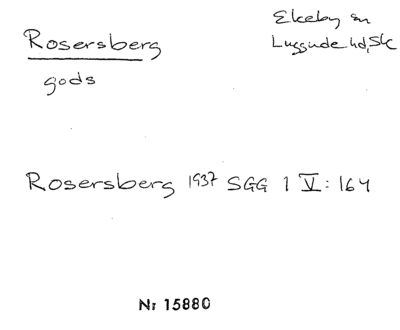 Rosersberg
gods
Ekeby sn
Luggude hd, Sk
Rosersberg 1937 SGG 1 V: 164
Nr 15880